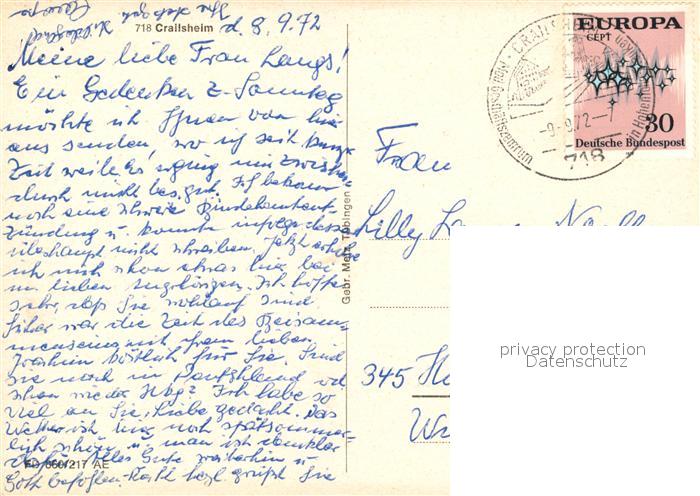 718 Crailsheim
d. 8.9.72
Meine liebe Frau Langs!
Ein Gedenken z. Sonntag
möchte ich Ihnen von hier
aus senden, wo ich seit kurzer
Zeit weile. Es erging mir zwischen-
durch nicht bes. gut. Ich bekam
noch eine schwere Bindehautent-
zündung u. konnte infolgedessen
überhaupt nicht schreiben. Jetzt erhole
ich mich schon etwas hier bei
m. lieben Angehörigen. Ich hoffe
sehr, daß Sie wohlauf sind.
Sicher war die Zeit des Beisam-
menseins mit Ihren lieben
köstlich für Sie. Sind
Sie noch in od.
schon wieder Hbg? Ich habe so
viel an Sie, Liebe gedacht. Das
Wetter ist hier noch spätsommer-
lich schön u. man ist dankbar
dafür. Alles Gute weiterhin u.
Gott befohlen. Recht herzl. grüßt Sie
Ihre
FD 860/217 AE
Gebr. Metz Tübingen
EUROPA
CEPT
30
Deutsche Bundespost
CRAILSHEIM
-9.9.72--7
in Hohenlohe
718
Frau
Lilly
345
privacy protection
Datenschutz